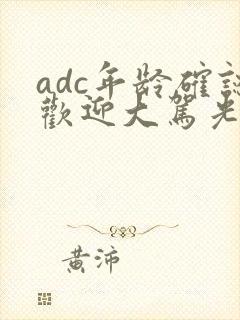 adc年龄確認
歡迎大駕光
黃沛